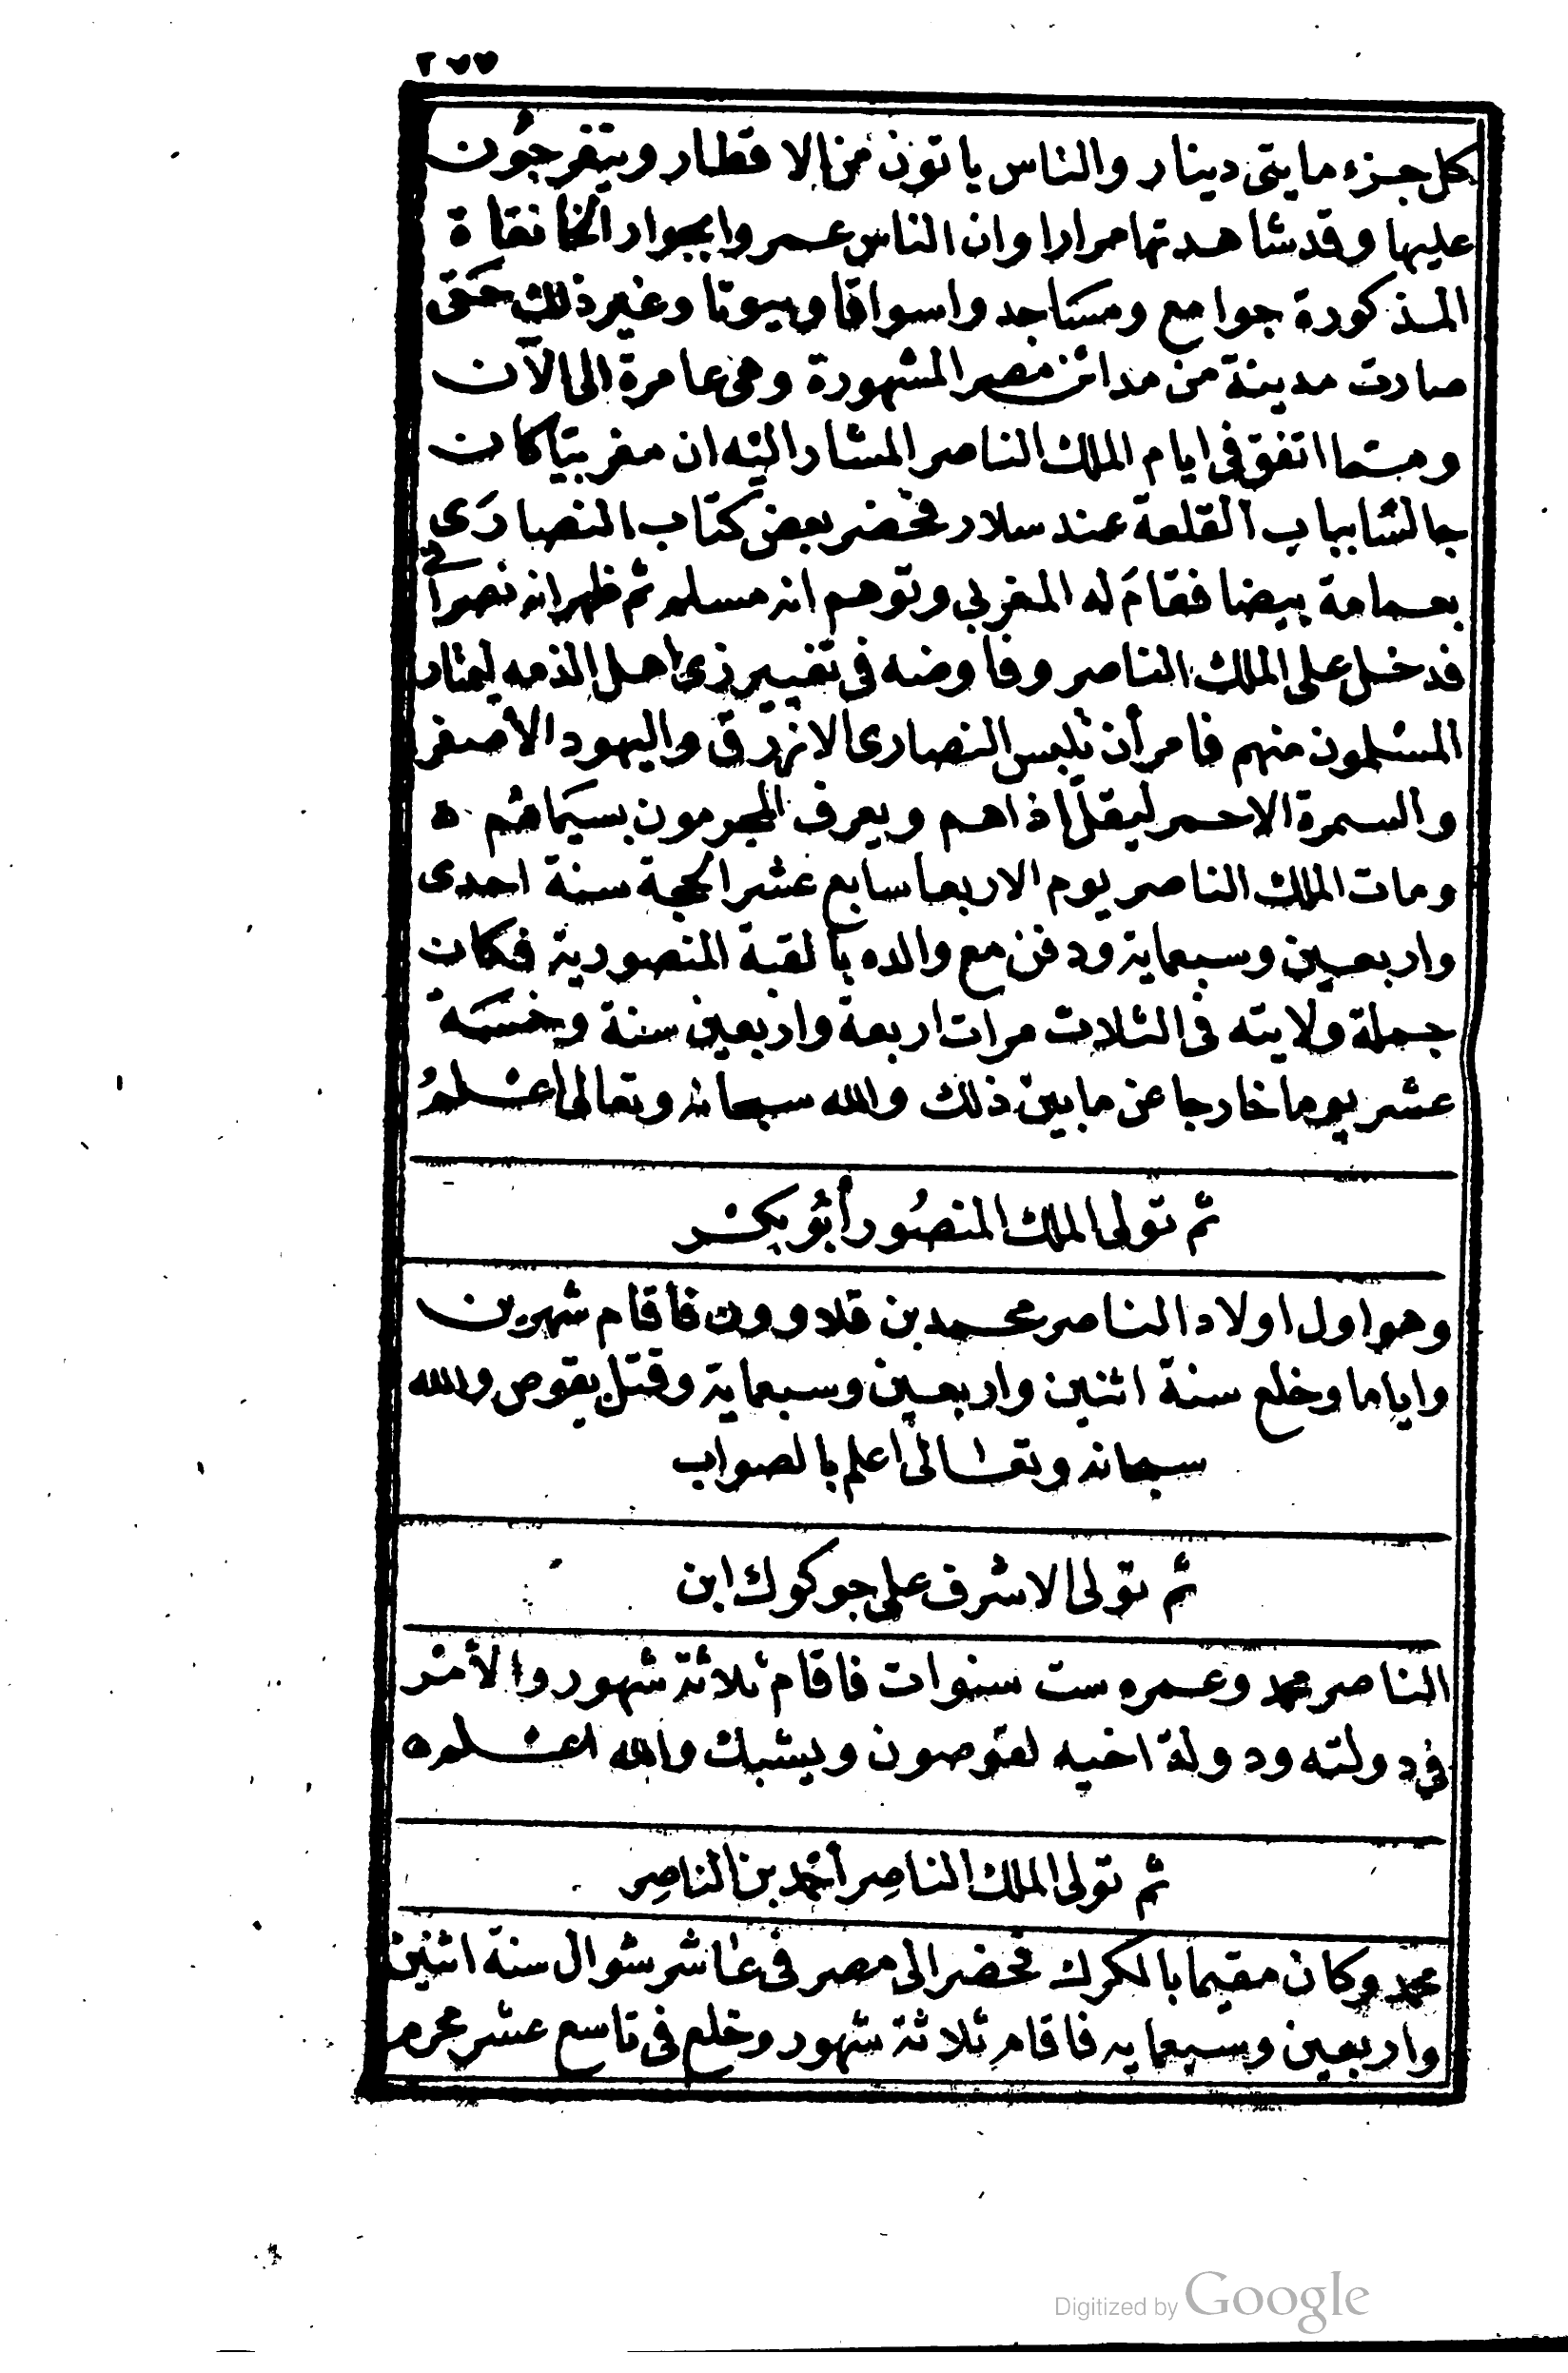 ٢٧٧
كل جزء مايتى دينار والناس ياتون من الاقطار ويتفرجون
عليها وقد شاهدتها مرارا وان الناس عمروا بجوار الخانقاة
المذكورة جوامع ومساجد واسواقا وبيوتا وغير ذلك حتى
صارت مدينة من مدائن مصر المشهورة وهى عامرة الى الآن
ومما اتفق فى ايام الملك الناصر المشار اليه ان مغربيا كان
جالسا بباب القلعة عند سلار فحضر بعض كتاب النصارى
بعمامة بيضا فقام له المغربى وتوهم انه مسلم ثم ظهر انه نصرانى
فدخل على الملك الناصر وفاوضه فى تغيير زى اهل الذمه ليمتاز
المسلمون منهم فامر أن تلبس النصارى الازرق واليهود الأصفر
والسمرة الاحمر ليقل اذاهم ويعرف المجرمون بسيماهم ه
ومات الملك الناصر يوم الاربعا سابع عشر الحجة سنة احدى
واربعين وسبعماية ودفن مع والده بالقبة المنصورية فكان
جملة ولايته فى الثلاث مرات اربعة واربعين سنة وخمسة
عشر يوما خارجا عن ما بين ذلك والله سبحانه وتعالى اعلم
ثم تولى الملك المنصور أبو بكر
وهو اول اولاد الناصر محمد بن قلاوون فاقام شهرين
واياما وخلع سنة اثنين واربعين وسبعماية وقتل بقوص والله
سبحانه وتعالى اعلم بالصواب
ثم تولى الاشرف على جوكوك ابن
الناصر محمد وعمره ست سنوات فاقام ثلاثة شهور والأمر
فى دولته ودولة اخيه لقوصون ويشبك والله اعلم ه
ثم تولى الملك الناصر أحمد بن الناصر
محمد وكان مقيما بالكرك فحضر الى مصر فى عاشر شوال سنة اثنين
واربعين وسبعمايه فاقام ثلاثة شهور وخلع فى تاسع عشر محرم
Digitized by Google